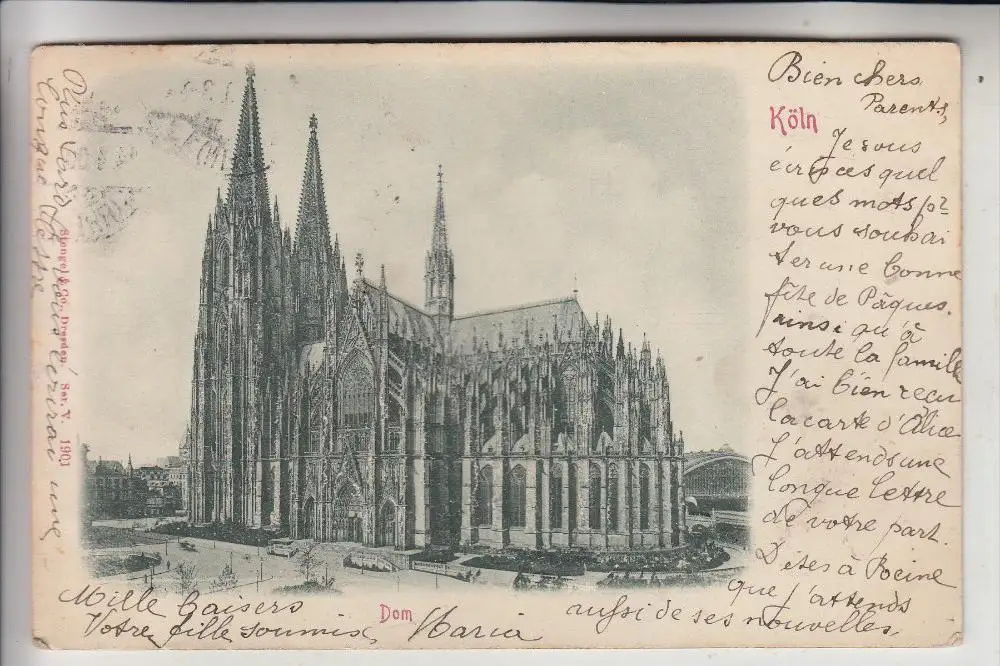 Bien chers
Parents,
Köln
Je vous
écris ces quel
ques mots pr
vous souhai
ter une bonne
fête de Pâques.
ainsi qu'à
toute la famille
J'ai bien reçu
la carte d'Alice
J'attends une
longue lettre
de votre part.
Dites à
que j'attends
aussi de ses nouvelles.
Mille baisers
Votre fille soumise
Maria
Dom
Plus tard je vous écrirai une
longue lettre
Stengel & Co., Dresden. Ser. V. 1901